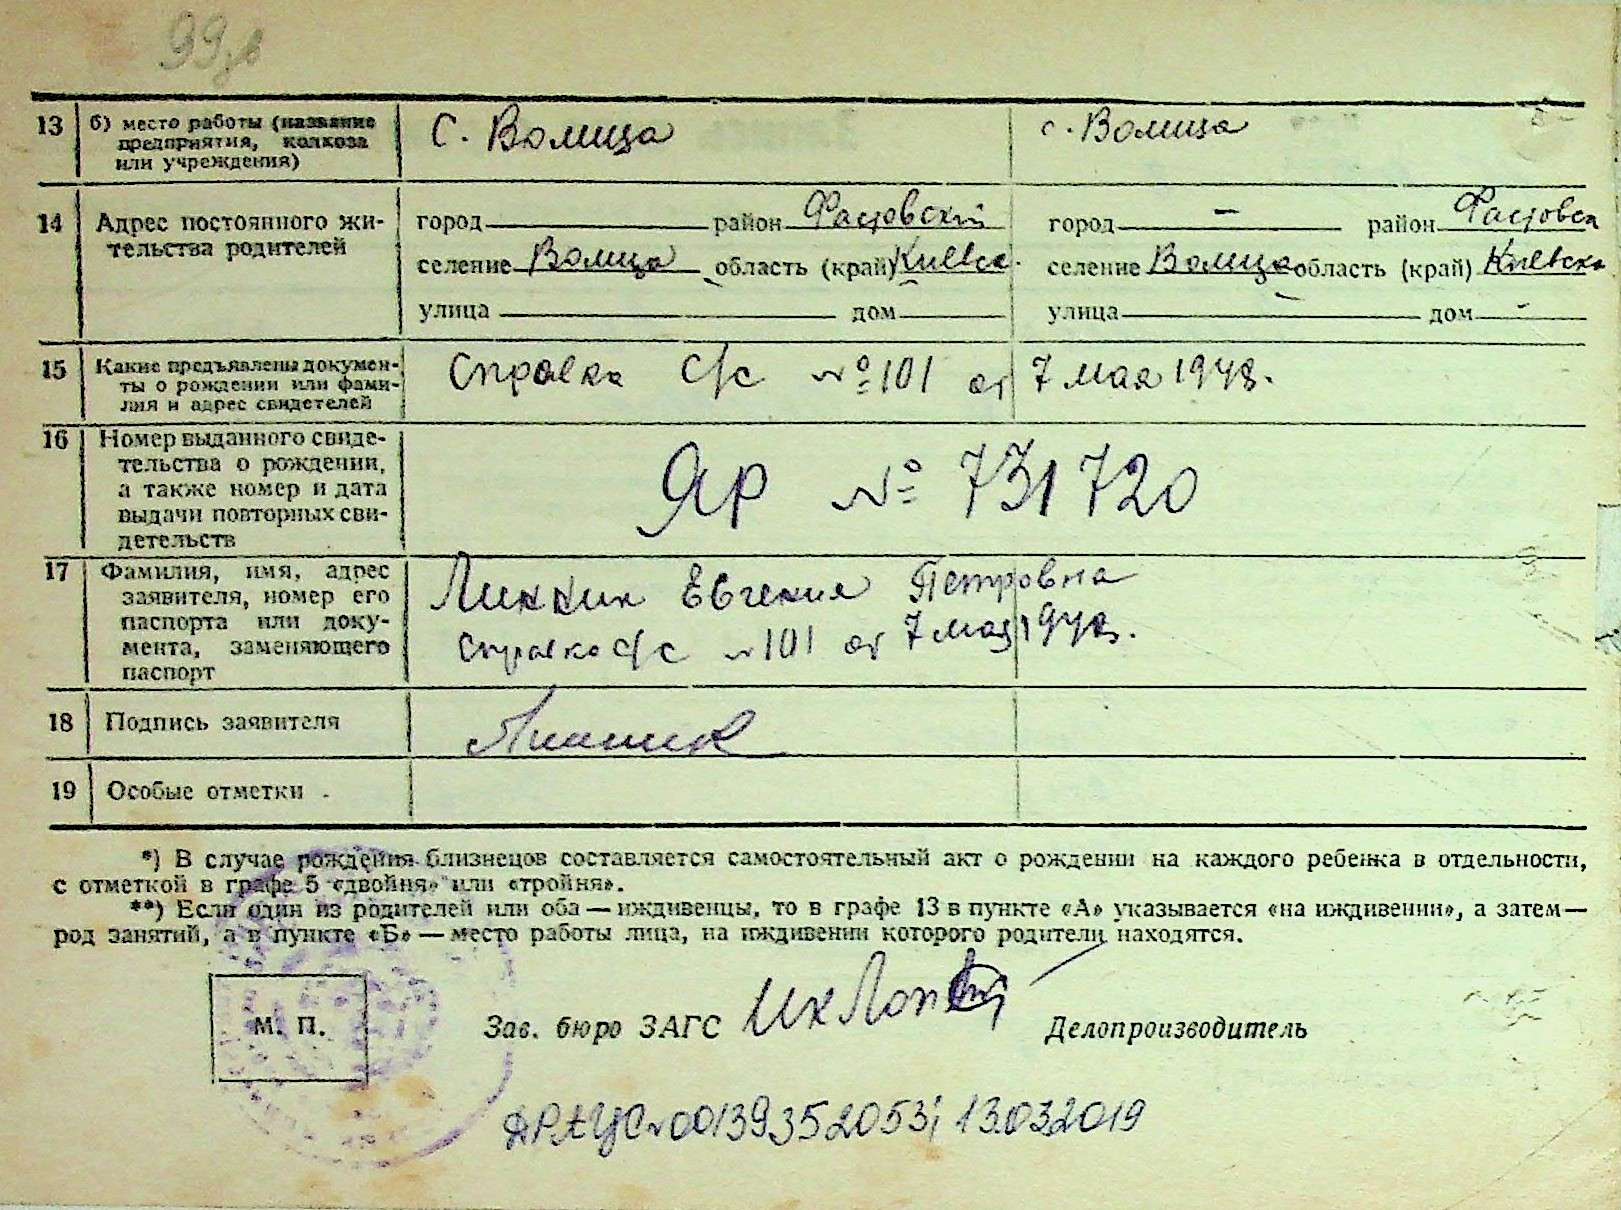 99зв
13 б) место работы (название
предприятия, колхоза
или учреждения)
с. Волица
с. Волица
14 Адрес постоянного жи-
тельства родителей
город район Фастовский
селение Волица область (край) Киевск.
улица дом
город — район Фастовск
селение Волица область (край) Киевско
улица — дом -
15 Какие предъявлены докумен-
ты о рождении или фами-
лия и адрес свидетелей
Справка с/с № 101 от 7 мая 194
16 Номер выданного свиде-
тельства о рождении,
а также номер и дата
выдачи повторных сви-
детельств
ЯР № 731720
17 Фамилия, имя, адрес
заявителя, номер его
паспорта или доку-
мента, заменяющего
паспорт
Евгения Петровна
справка с/с № 101 от 7 мая 194
18 Подпись заявителя
19 Особые отметки
*) В случае рождения близнецов составляется самостоятельный акт о рождении на каждого ребенка в отдельности,
с отметкой в графе 5 «двойня» или «тройня».
**) Если один из родителей или оба — иждивенцы, то в графе 13 в пункте «А» указывается «на иждивении», а затем—
род занятий, а в пункте «Б» — место работы лица, на иждивении которого родители находятся.
М. П. Зав. бюро ЗАГС Делопроизводитель
ДРАЦС № 00139352053; 13.03.2019